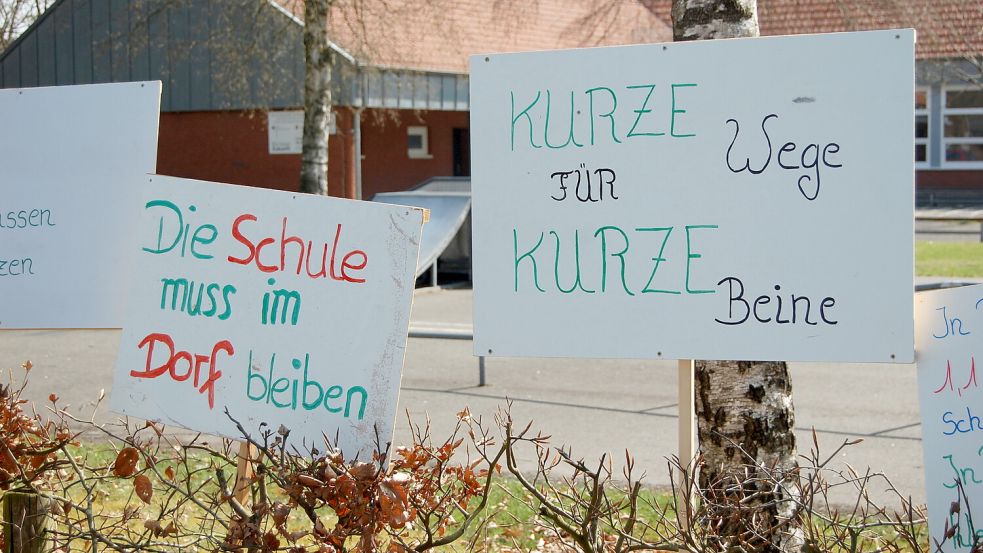 Die Schule
muss im
Dorf bleiben
KURZE Wege
FÜR
KURZE Beine
In
1,1
Sch
In